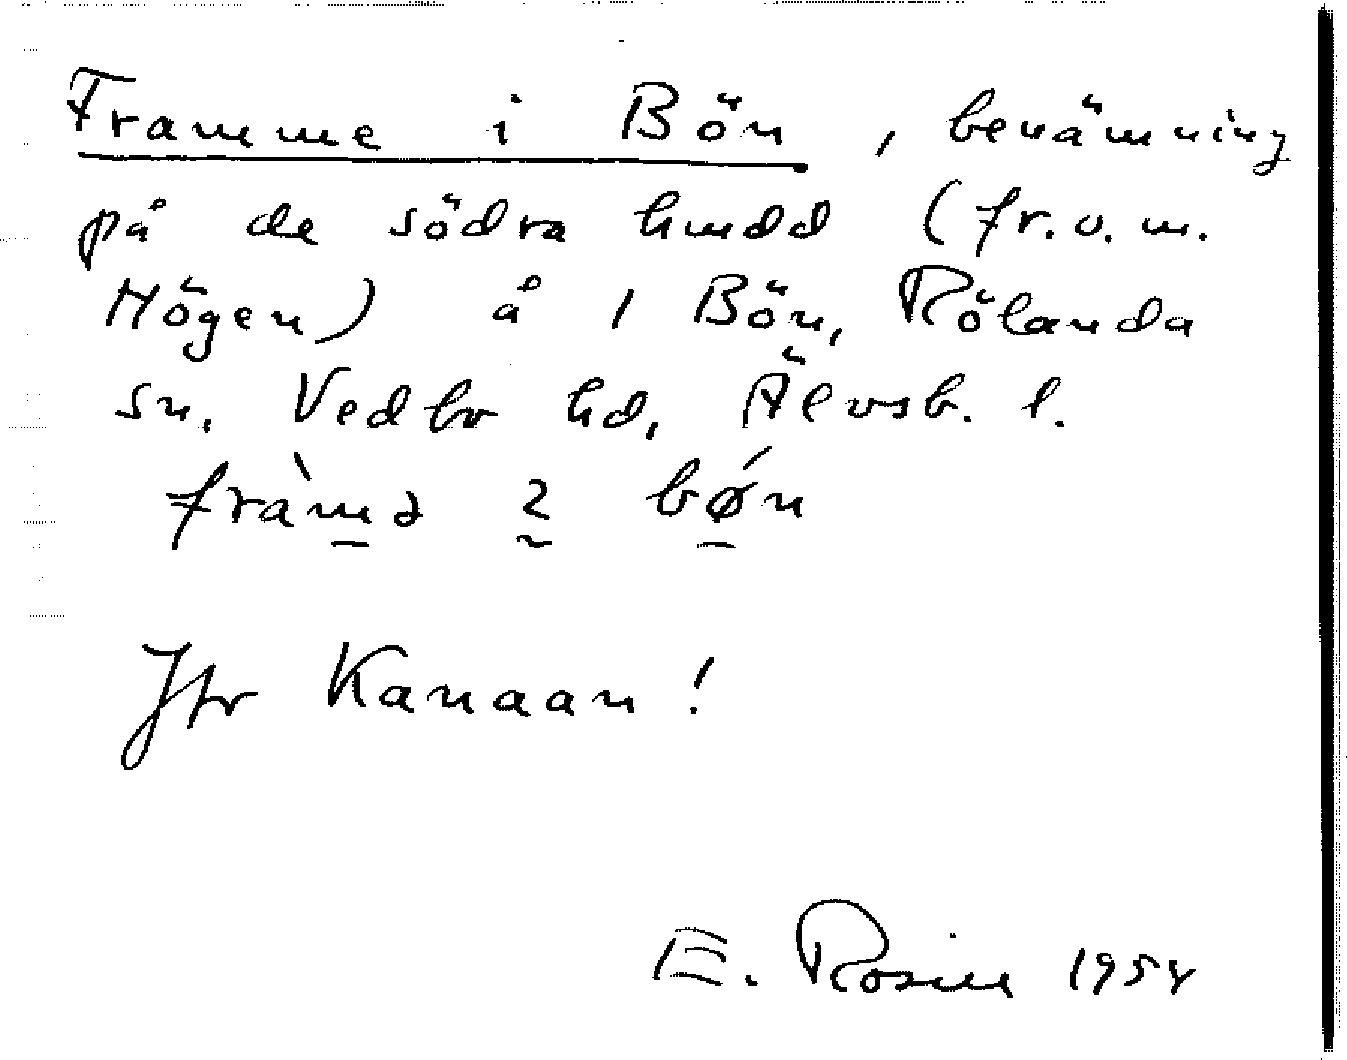 Framme i Bön, benämning
på de södra hmdd (fr.o.m.
Högen) å 1 Bön, Rölanda
sn, Vedbo hd, Älvsb. l.
Jfr Kanaan!
E. Rosin 1954